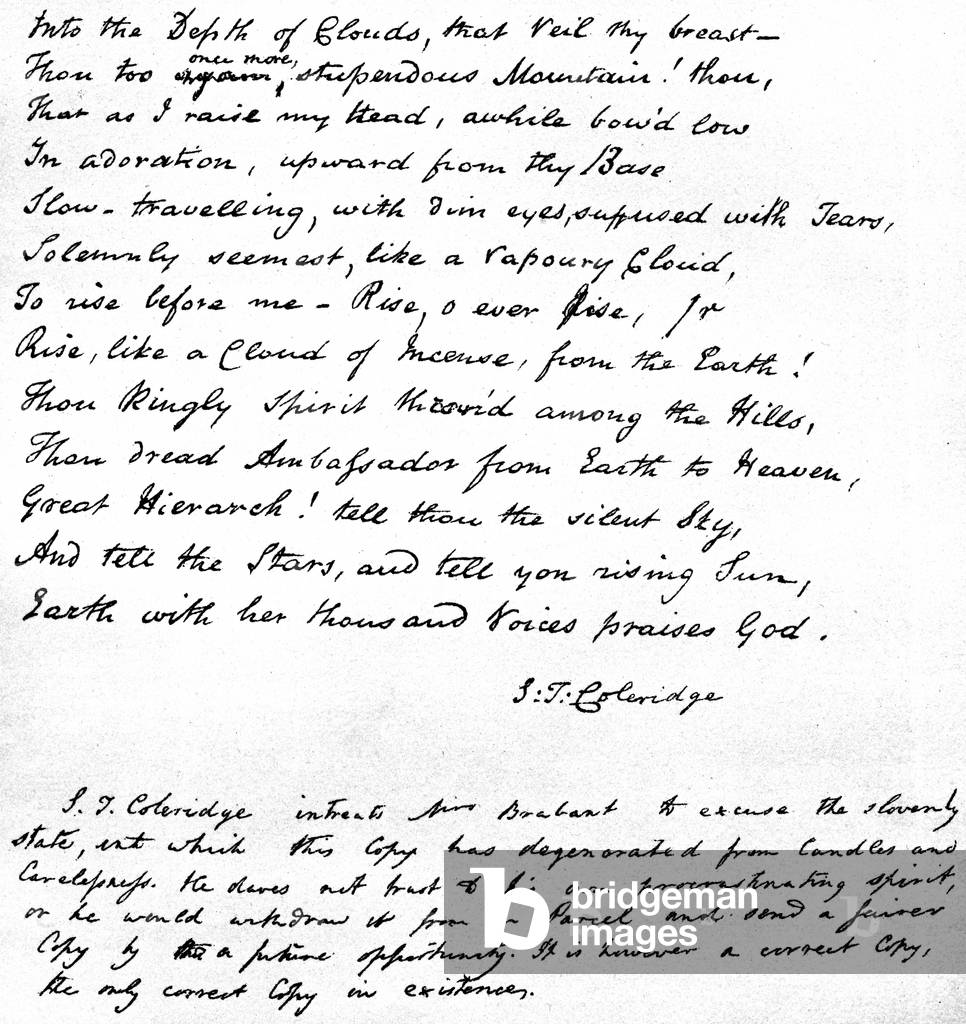 Into the Depth of Clouds, that Veil thy breast—
Thou too once more, stupendous Mountain! thou,
That as I raise my Head, awhile bow'd low
In adoration, upward from thy Base
Slow-travelling, with dim eyes, suffused with Tears,
Solemnly seemest, like a Vapoury Cloud,
To rise before me – Rise, o ever Rise,
Rise, like a Cloud of Incense, from the Earth!
Thou Kingly Spirit thron'd among the Hills,
Thou dread Ambassador from Earth to Heaven,
Great Hierarch! tell thou the silent Sky,
And tell the Stars, and tell yon rising Sun,
Earth with her thousand Voices praises God.
S: T: Coleridge
S. T. Coleridge intreats Mrs Brabant to excuse the slovenly
state, into which this Copy has degenerated from Candles and
Carelessness. He dares not trust to his own procrastinating spirit,
or he would withdraw it from Parcel and send a fairer
Copy by a future opportunity. It is however a correct Copy,
the only correct Copy in existence.
bridgeman
images